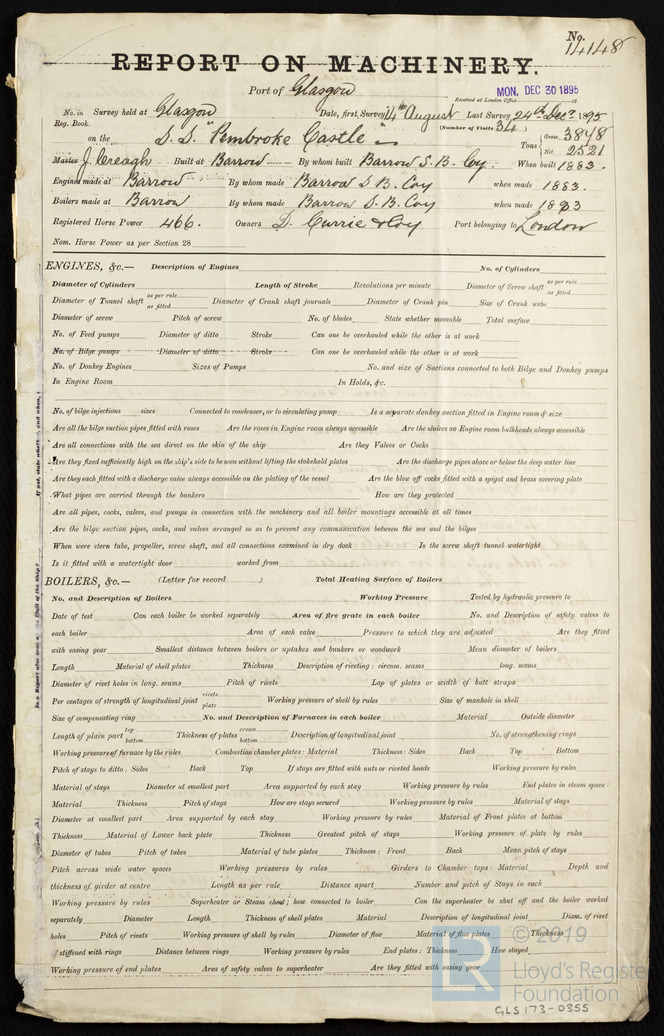 No.
14148
REPORT ON MACHINERY.
Port of Glasgow
MON. DEC 30 1895
Received at London Office 18
No. in Survey held at Glasgow Date, first Survey 14th August Last Survey 24th Decr 1895
Reg. Book. (Number of Visits 34)
on the S.S. "Pembroke Castle" Tons { Gross 3848
Net 2521
Master J. Creagh Built at Barrow By whom built Barrow S.B. Coy. When built 1883.
Engines made at Barrow By whom made Barrow S B. Coy when made 1883.
Boilers made at Barrow By whom made Barrow S.B. Coy when made 1883
Registered Horse Power 466. Owners D. Currie & Coy Port belonging to London
Nom. Horse Power as per Section 28
ENGINES, &c.— Description of Engines No. of Cylinders
Diameter of Cylinders Length of Stroke Revolutions per minute Diameter of Screw shaft as per rule as fitted
Diameter of Tunnel shaft as per rule as fitted Diameter of Crank shaft journals Diameter of Crank pin Size of Crank webs
Diameter of screw Pitch of screw No. of blades State whether moveable Total surface
No. of Feed pumps Diameter of ditto Stroke Can one be overhauled while the other is at work
No. of Bilge pumps Diameter of ditto Stroke Can one be overhauled while the other is at work
No. of Donkey Engines Sizes of Pumps No. and size of Suctions connected to both Bilge and Donkey pumps
In Engine Room In Holds, &c.
No. of bilge injections sizes Connected to condenser, or to circulating pump Is a separate donkey suction fitted in Engine room & size
Are all the bilge suction pipes fitted with roses Are the roses in Engine room always accessible Are the sluices on Engine room bulkheads always accessible
Are all connections with the sea direct on the skin of the ship Are they Valves or Cocks
Are they fixed sufficiently high on the ship's side to be seen without lifting the stokehold plates Are the discharge pipes above or below the deep water line
Are they each fitted with a discharge valve always accessible on the plating of the vessel Are the blow off cocks fitted with a spigot and brass covering plate
What pipes are carried through the bunkers How are they protected
Are all pipes, cocks, valves, and pumps in connection with the machinery and all boiler mountings accessible at all times
Are the bilge suction pipes, cocks, and valves arranged so as to prevent any communication between the sea and the bilges
When were stern tube, propeller, screw shaft, and all connections examined in dry dock Is the screw shaft tunnel watertight
Is it fitted with a watertight door worked from
BOILERS, &c.— (Letter for record ) Total Heating Surface of Boilers
No. and Description of Boilers Working Pressure Tested by hydraulic pressure to
Date of test Can each boiler be worked separately Area of fire grate in each boiler No. and Description of safety valves to
each boiler Area of each valve Pressure to which they are adjusted Are they fitted
with easing gear Smallest distance between boilers or uptakes and bunkers or woodwork Mean diameter of boilers
Length Material of shell plates Thickness Description of riveting: circum. seams long. seams
Diameter of rivet holes in long. seams Pitch of rivets Lap of plates or width of butt straps
Per centages of strength of longitudinal joint rivets plate Working pressure of shell by rules Size of manhole in shell
Size of compensating ring No. and Description of Furnaces in each boiler Material Outside diameter
Length of plain part top bottom Thickness of plates crown bottom Description of longitudinal joint No. of strengthening rings
Working pressure of furnace by the rules Combustion chamber plates: Material Thickness: Sides Back Top Bottom
Pitch of stays to ditto: Sides Back Top If stays are fitted with nuts or riveted heads Working pressure by rules
Material of stays Diameter at smallest part Area supported by each stay Working pressure by rules End plates in steam space:
Material Thickness Pitch of stays How are stays secured Working pressure by rules Material of stays
Diameter at smallest part Area supported by each stay Working pressure by rules Material of Front plates at bottom
Thickness Material of Lower back plate Thickness Greatest pitch of stays Working pressure of plate by rules
Diameter of tubes Pitch of tubes Material of tube plates Thickness: Front Back Mean pitch of stays
Pitch across wide water spaces Working pressures by rules Girders to Chamber tops: Material Depth and
thickness of girder at centre Length as per rule Distance apart Number and pitch of Stays in each
Working pressure by rules Superheater or Steam chest; how connected to boiler Can the superheater be shut off and the boiler worked
separately Diameter Length Thickness of shell plates Material Description of longitudinal joint Diam. of rivet
holes Pitch of rivets Working pressure of shell by rules Diameter of flue Material of flue plates Thickness
If stiffened with rings Distance between rings Working pressure by rules End plates: Thickness How stayed
Working pressure of end plates Area of safety valves to superheater Are they fitted with easing gear
© 2019
Lloyd's Register
Foundation
GLS 173-0355